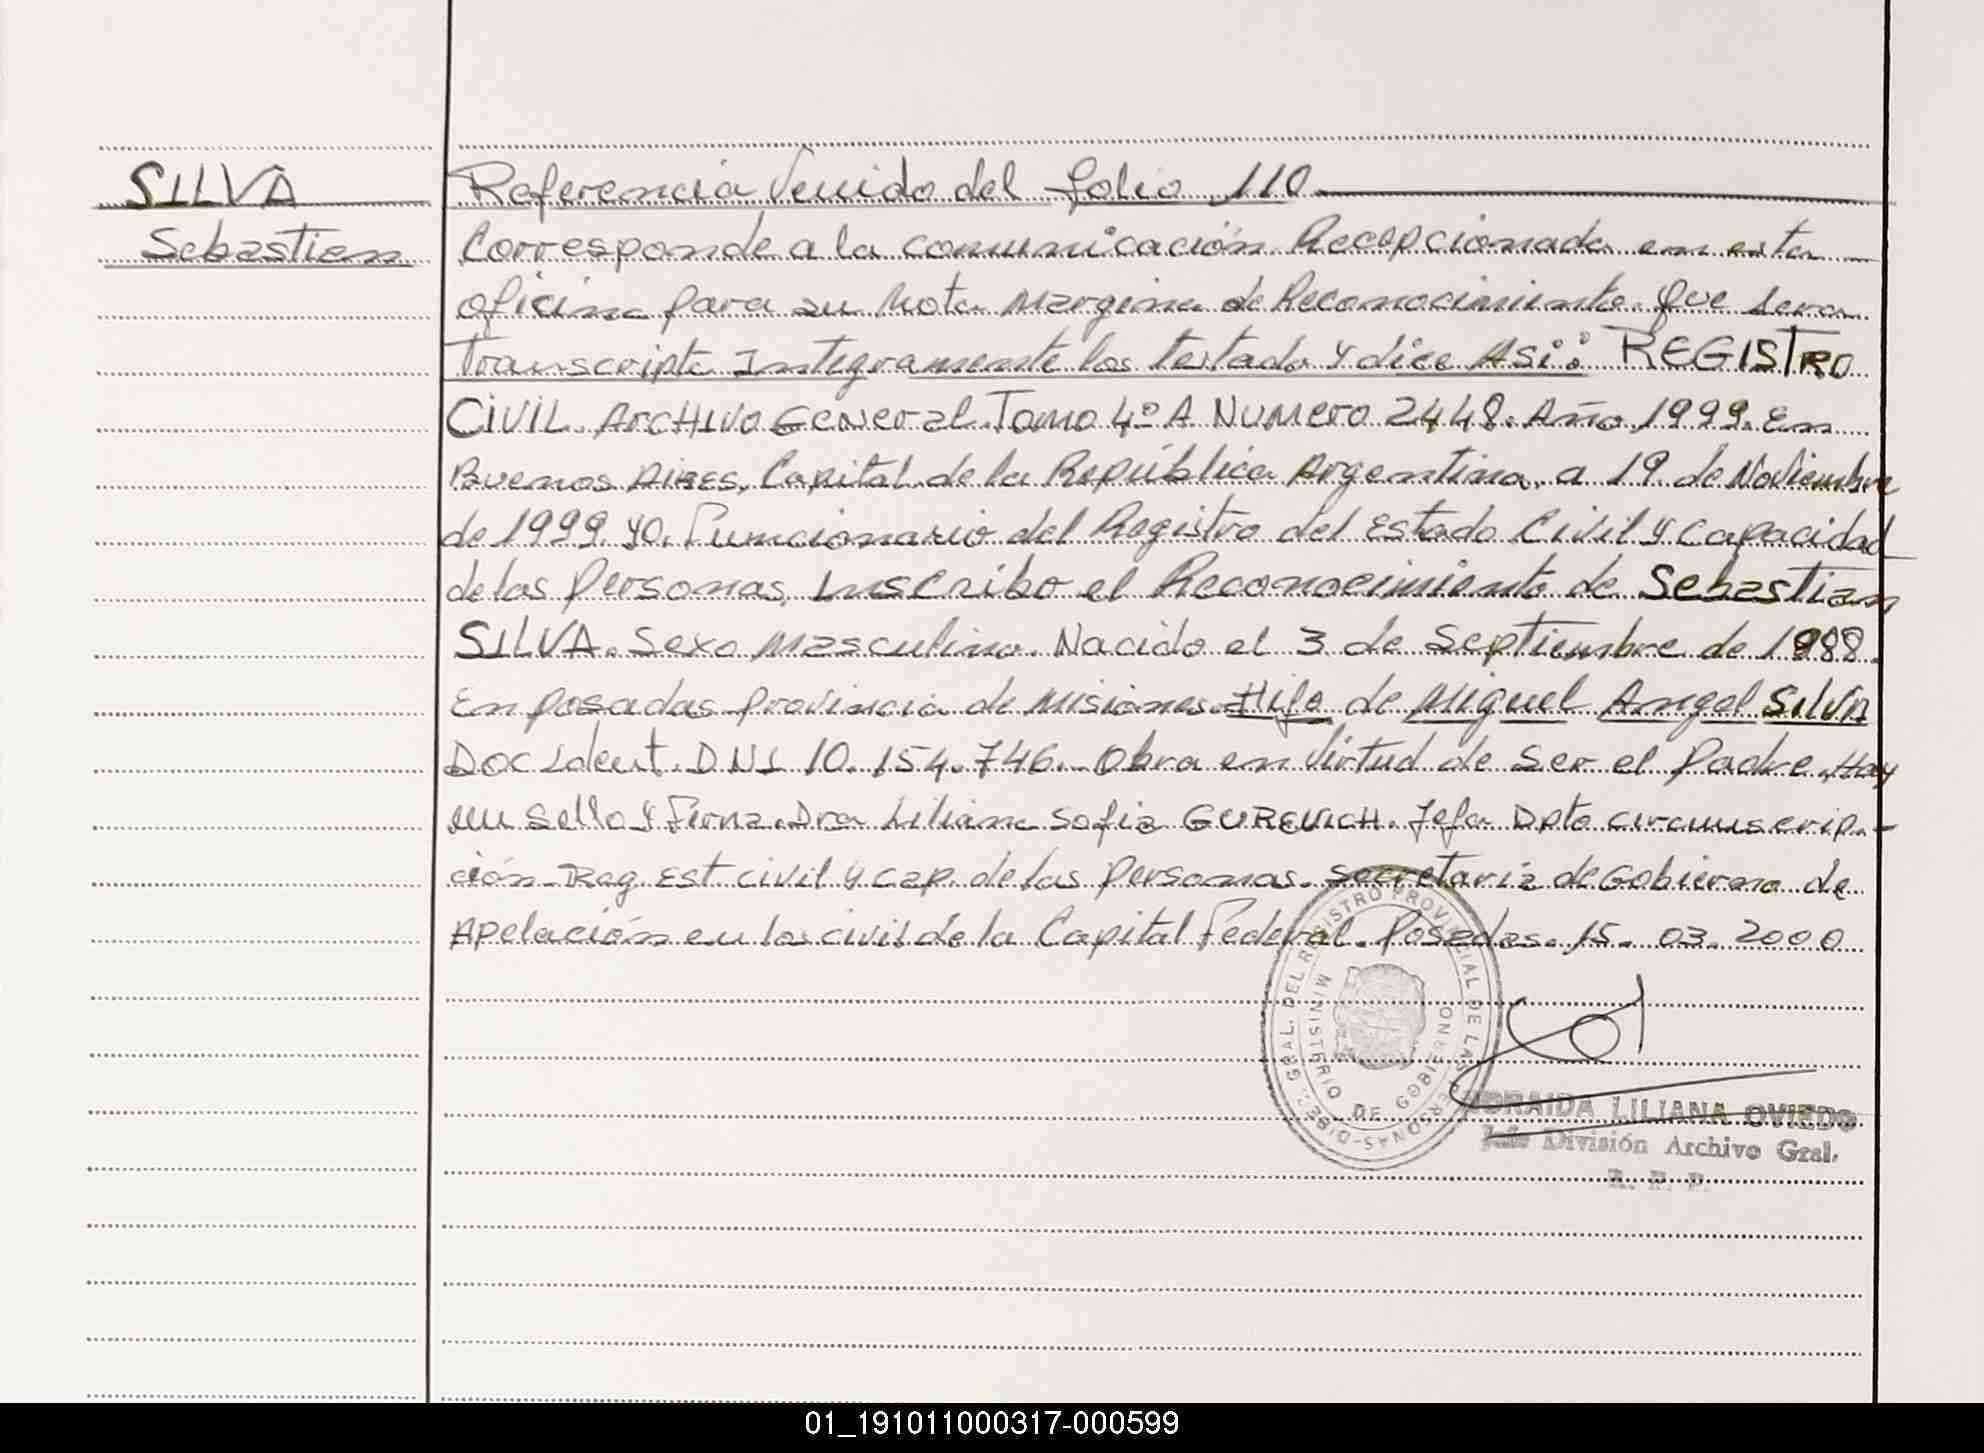 SILVA
Sebastian
Referencia Venido del folio 110
Corresponde a la comunicación Recepcionada en esta
oficina para su Nota Margina de Reconocimiento. Que sera
Transcripta Integramente los testado y dice Asi: REGISTRO
CIVIL. Archivo General. Tomo 4º A Numero 2448. Año 1999. En
Buenos Aires, Capital de la República Argentina, a 19 de Noviembre
de 1999. yo. Funcionario del Registro del Estado Civil y Capacidad
de las Personas, Inscribo el Reconocimiento de Sebastian
SILVA. Sexo Masculino. Nacido el 3 de Septiembre de 1988.
En Posadas provincia de Misiones. Hijo de Miguel Angel Silva
Doc Ident. DNI 10.154.746. Obra en Virtud de Ser el Padre. Hay
un Sello y Firma. Dra Liliana Sofia GUREVICH. Jefa Dpto circunscrip.-
ción. Reg. Est civil y cap. de las Personas. Secretaria de Gobierno de
Apelación en los civil de la Capital Federal. Posadas. 15. 03. 2000
GRAL. DEL REGISTRO PROVINCIAL DE LAS PERSONAS
MINISTERIO DE GOBIERNO
LILIANA OVIEDO
Jefe División Archivo Gral.
R. P. P.
01_191011000317-000599